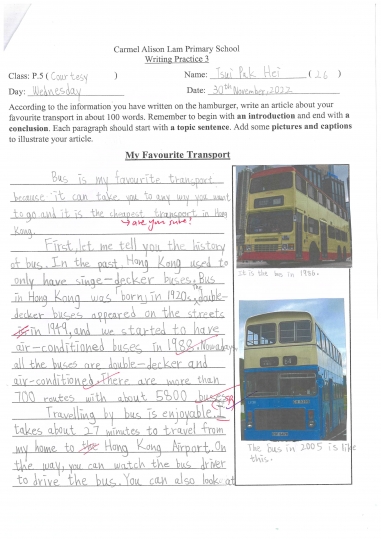 Carmel Alison Lam Primary School
Writing Practice 3
Class: P.5 ( Courtesy ) Name: Tsui Pak Hei ( 26 )
Day: Wednesday Date: 30th November, 2022
According to the information you have written on the hamburger, write an article about your
favourite transport in about 100 words. Remember to begin with an introduction and end with a
conclusion. Each paragraph should start with a topic sentence. Add some pictures and captions
to illustrate your article.
My Favourite Transport
Bus is my favourite transport
because it can take you to any way you want
to go and it is the cheapest transport in Hong
Kong.
→ are you sure?
First, let me tell you the history
of bus. In the past, Hong Kong used to
only have singe-decker buses. Bus
in Hong Kong was born in 1920s. The double-
decker buses appeared on the streets
in 1949, and we started to have
air-conditioned buses in 1988. Nowadays,
all the buses are double-decker and
air-conditioned. There are more than
700 routes with about 5800 buses.
Travelling by bus is enjoyable. It
takes about 27 minutes to travel from
my home to the Hong Kong Airport. On
the way, you can watch the bus driver
to drive the bus. You can also look at
It is the bus in 1986.
The bus in 2005 is like
this.